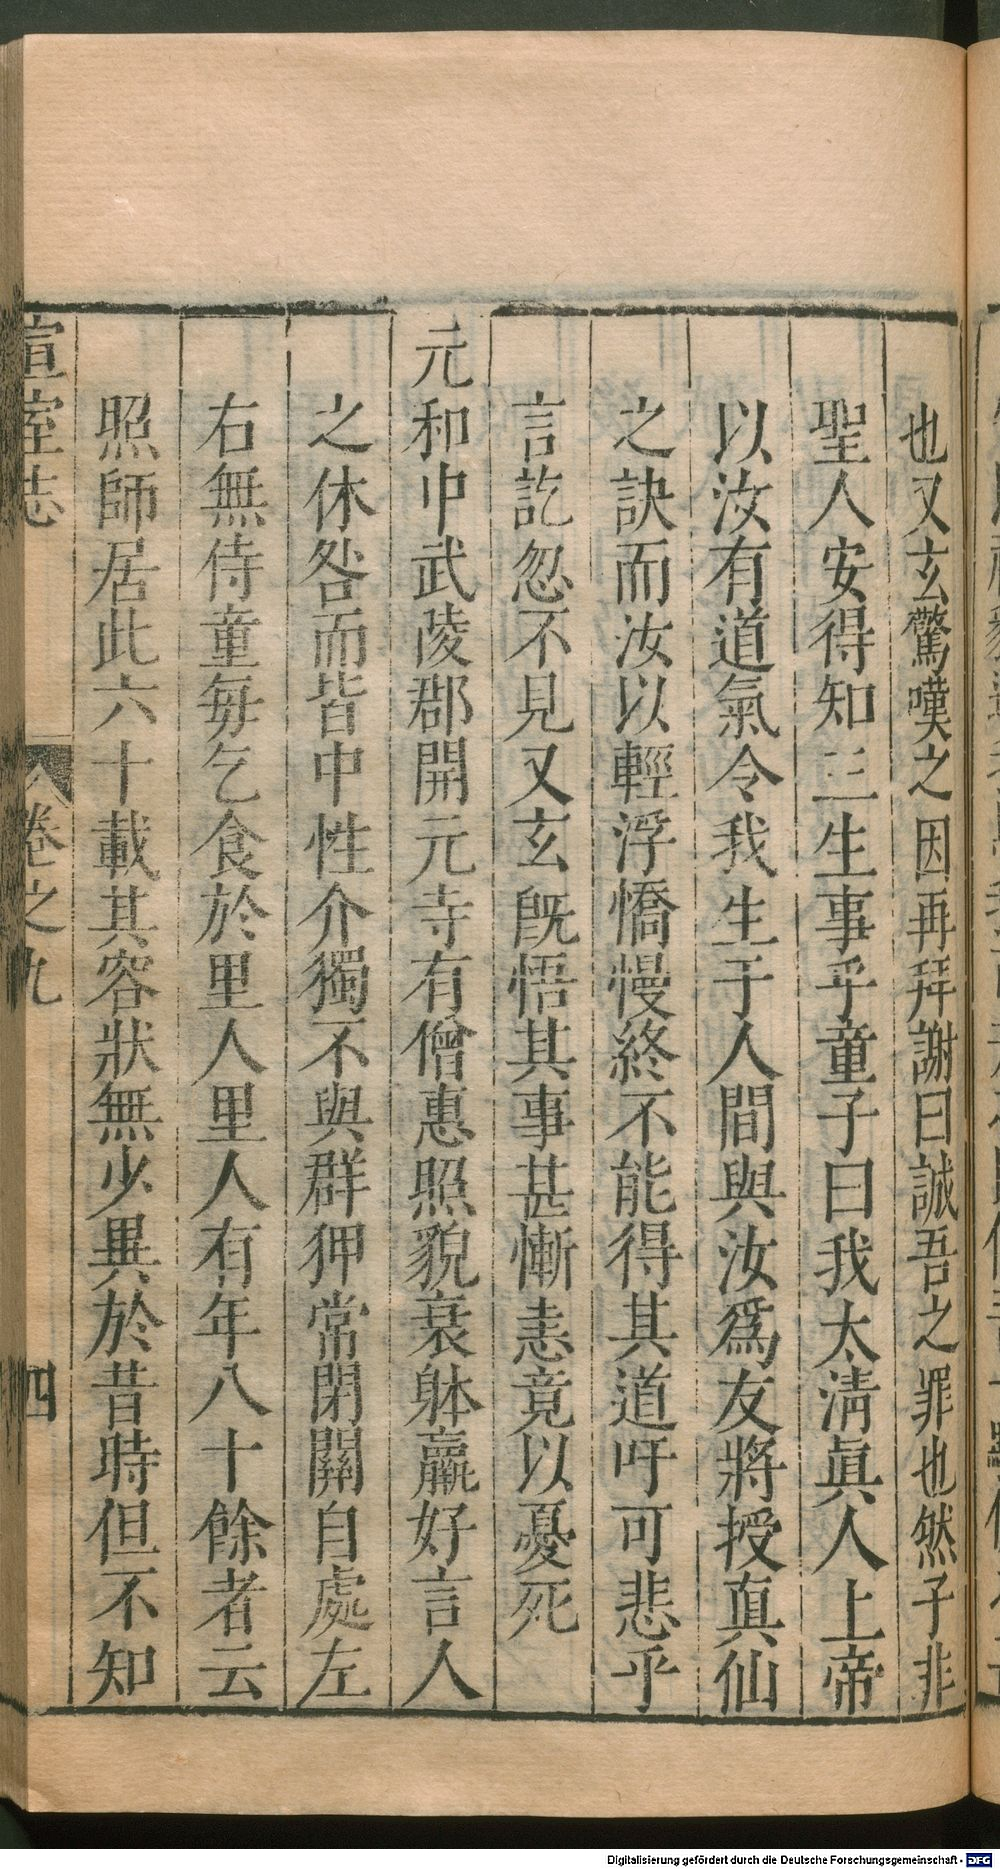 也又玄驚嘆之因再拜謝曰誠吾之罪也然子非
聖人安得知三生事乎童子曰我太淸眞人上帝
以汝有道氣令我生于人間與汝爲友將授真仙
之訣而汝以輕浮憍慢終不能得其道吁可悲乎
言訖忽不見又玄旣悟其事甚慚恚竟以憂死
元和中武陵郡開元寺有僧惠照貌衰躰羸好言人
之休咎而皆中性介獨不與群狎常閉關自處左
右無侍童每乞食於里人里人有年八十餘者云
照師居此六十載其容狀無少異於昔時但不知
宣室志
卷之九
四
Digitalisierung gefördert durch die Deutsche Forschungsgemeinschaft - DFG